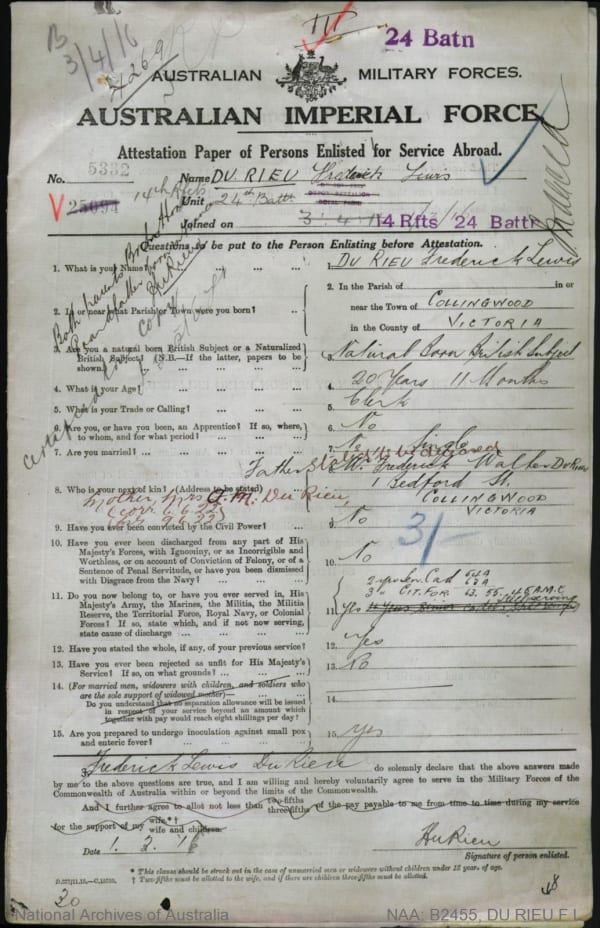 B
3/4/16
4269
III
24 Batn
AUSTRALIAN MILITARY FORCES.
AUSTRALIAN IMPERIAL FORCE
Attestation Paper of Persons Enlisted for Service Abroad.
No. 5332 Name DU RIEU Frederick Lewis
14th Rfts Unit 24th Battn
Joined on 14 Rfts 24 Battn
Questions to be put to the Person Enlisting before Attestation.
1. What is your Name? ... ... ... 1. Du Rieu Frederick Lewis
2. In or near what Parish or Town were you born? ... 2. In the Parish of in or
near the Town of COLLINGWOOD
in the County of VICTORIA
3. Are you a natural born British Subject or a Naturalized British Subject? (N.B.—If the latter, papers to be shown.) 3. Natural Born British Subject
4. What is your Age? ... 4. 20 Years 11 Months
5. What is your Trade or Calling? ... 5. Clerk
6. Are you, or have you been, an Apprentice? If so, where, to whom, and for what period? ... 6. No
7. Are you married? ... 7. No Single
8. Who is your next of kin? (Address to be stated) Father W. Frederick Walter Du Rieu
1 Bedford St.
COLLINGWOOD
VICTORIA
Mother, Mrs A. M. Du Rieu,
9. Have you ever been convicted by the Civil Power? ... 9. No
3/-
10. Have you ever been discharged from any part of His
Majesty's Forces, with Ignominy, or as Incorrigible and
Worthless, or on account of Conviction of Felony, or of a
Sentence of Penal Servitude, or have you been dismissed
with Disgrace from the Navy? ... 10. No
11. Do you now belong to, or have you ever served, in His
Majesty's Army, the Marines, the Militia, the Militia
Reserve, the Territorial Force, Royal Navy, or Colonial
Forces? If so, state which, and if not now serving,
state cause of discharge ... 11. Yes
12. Have you stated the whole, if any, of your previous service? 12. Yes
13. Have you ever been rejected as unfit for His Majesty's
Service? If so, on what grounds? ... 13. No
14. (For married men, widowers with children, and soldiers who
are the sole support of widowed mother)—
Do you understand that no separation allowance will be issued
in respect of your service beyond an amount which
together with pay would reach eight shillings per day? 14.
15. Are you prepared to undergo inoculation against small pox
and enteric fever? ... 15. Yes
I, Frederick Lewis Du Rieu do solemnly declare that the above answers made
by me to the above questions are true, and I am willing and hereby voluntarily agree to serve in the Military Forces of the
Commonwealth of Australia within or beyond the limits of the Commonwealth.
And I further agree to allot not less than two-fifths three-fifths of the pay payable to me from time to time during my service
for the support of my wife*† wife and children.
Date 1.2.16
Signature of person enlisted.
* This clause should be struck out in the case of unmarried men or widowers without children under 18 years of age.
† Two-fifths must be allotted to the wife, and if there are children three-fifths must be allotted.
National Archives of Australia
NAA: B2455, DU RIEU F L